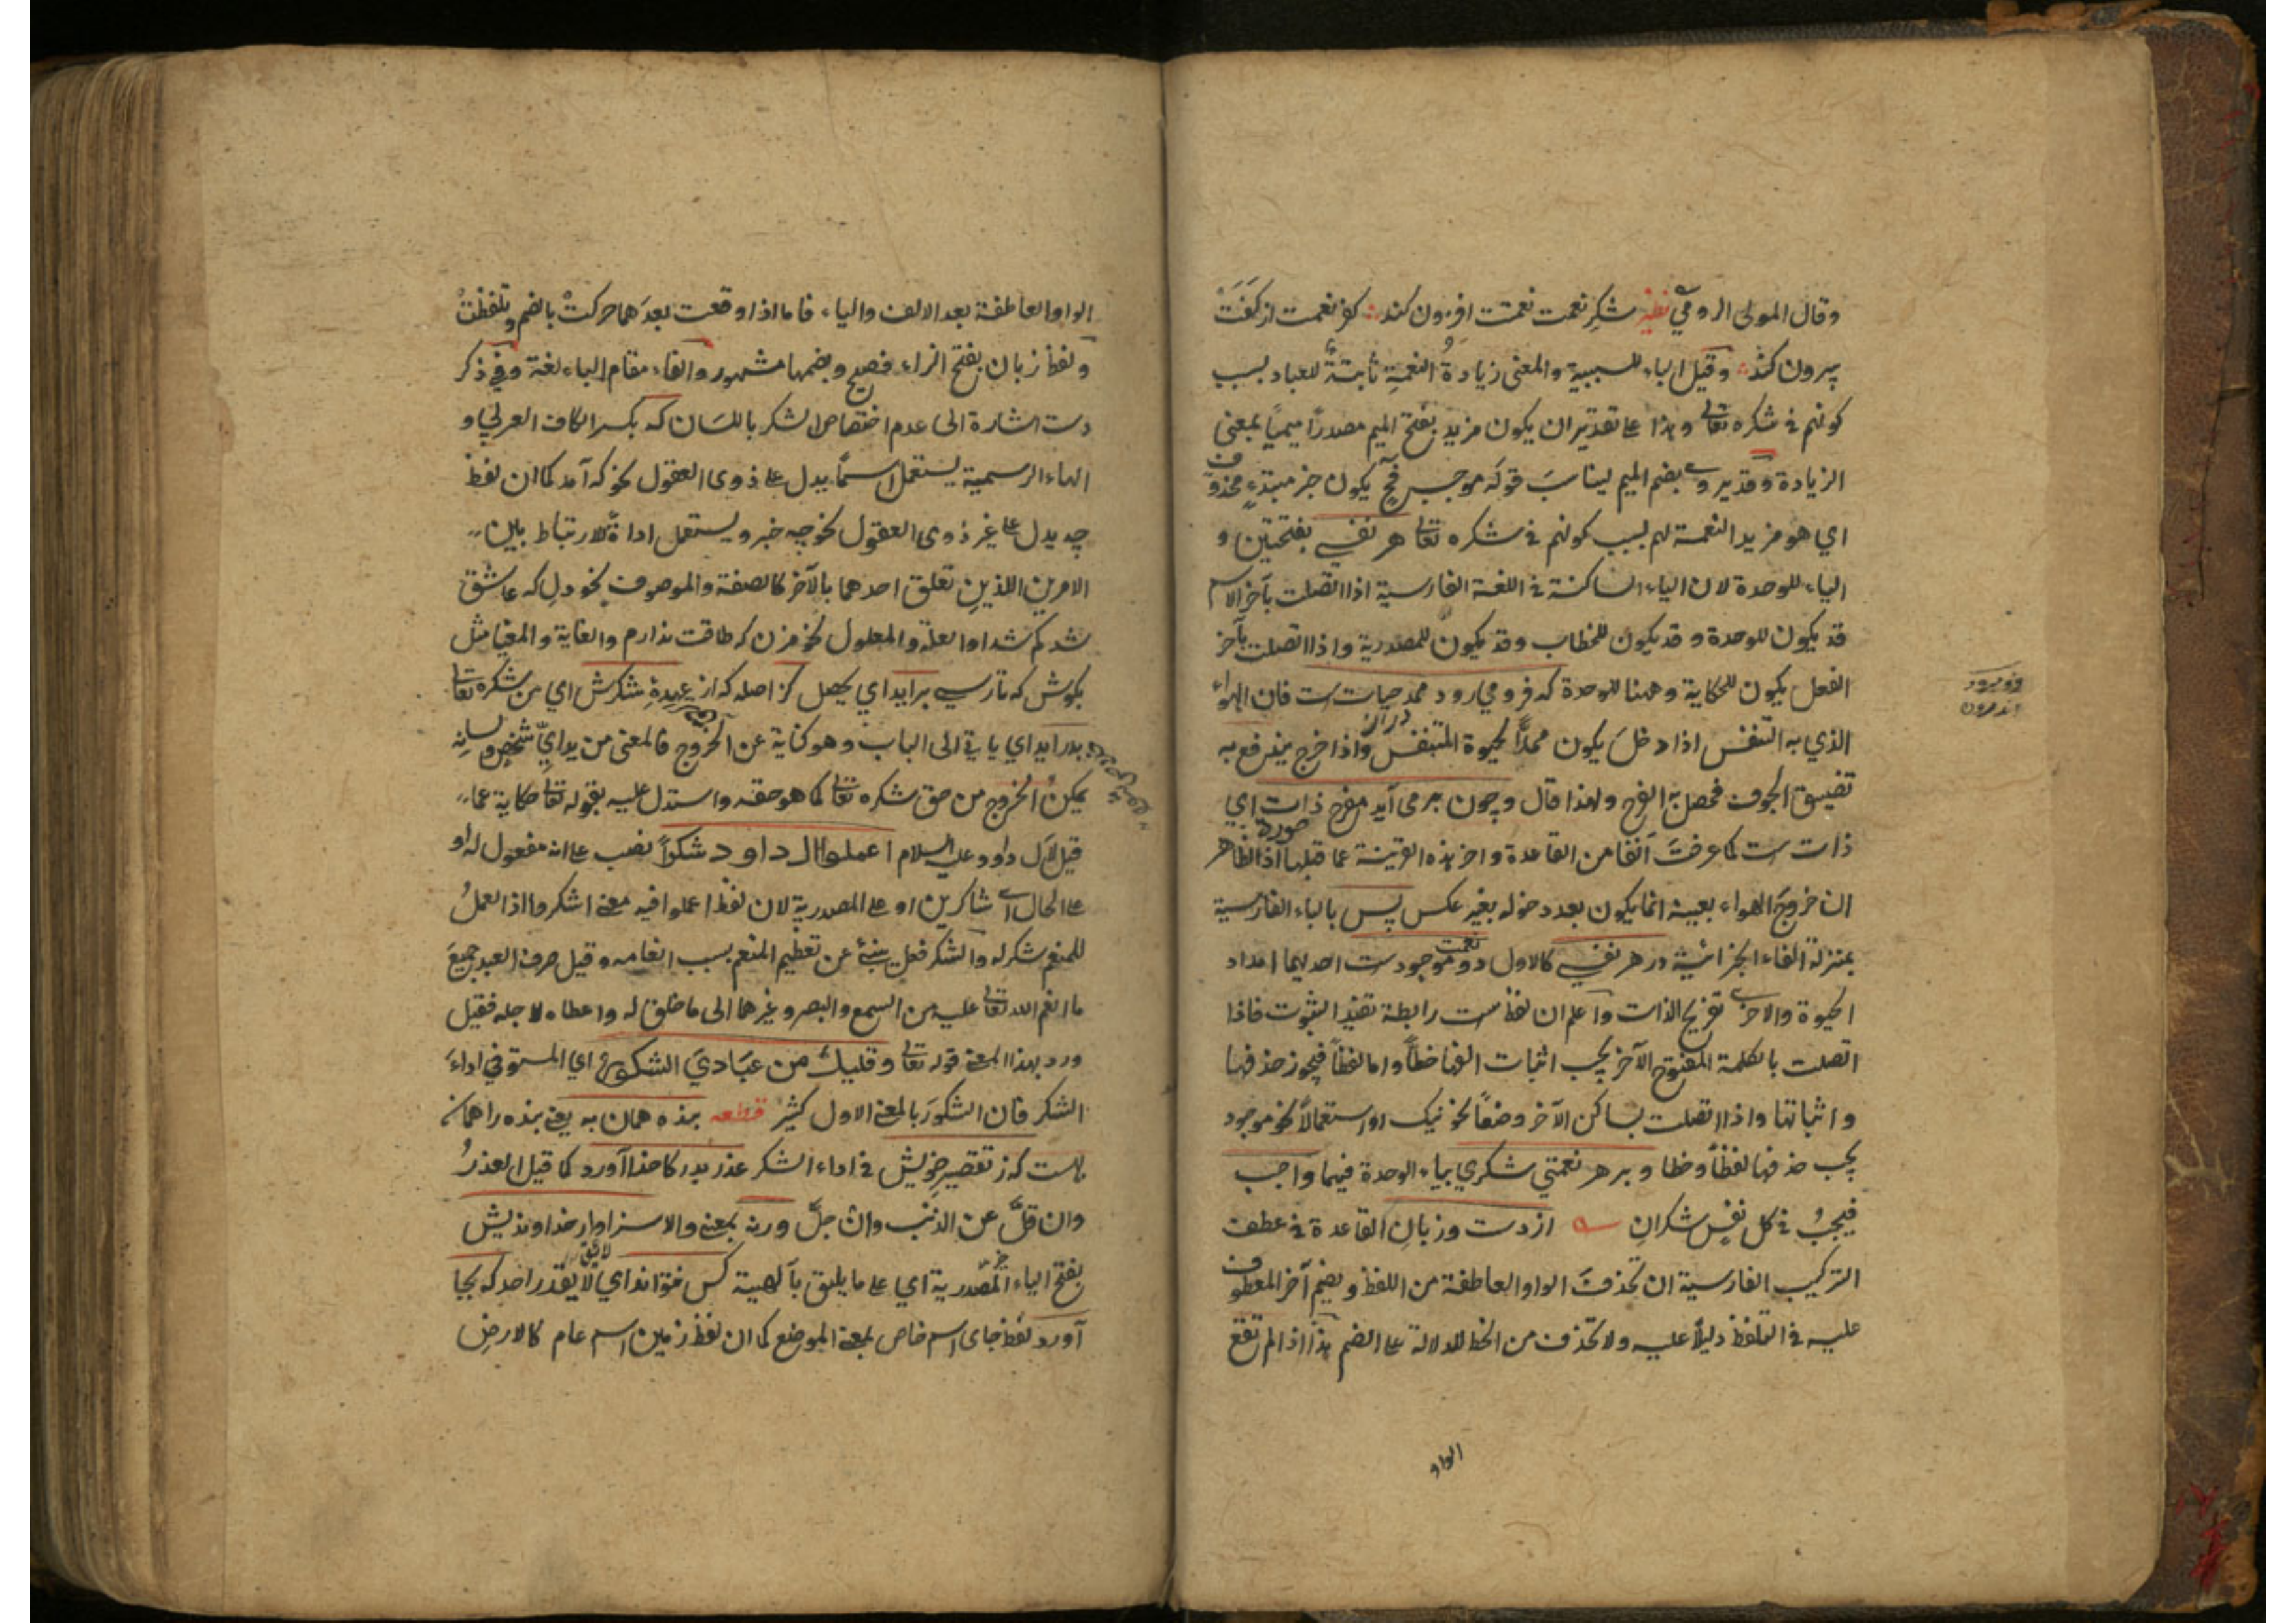 وقال المولى الرومي نظم شكر نعمت نعمت افزون كند كفر نعمت از كفت
بيرون كند وقيل الباء للسببية والمعنى زيادة النعمة ثابتة للعباد بسبب
كونهم في شكره تعالى وهذا على تقدير ان يكون مزيد بفتح الميم مصدرا ميميا بمعنى
الزيادة وقد يروى بضم الميم ليناسب قوله موجب فح يكون خبر مبتدء محذوف
اي هو مزيد النعمة لهم بسبب كونهم في شكره تعالى هر نفسي بفتحتين و
الياء للوحدة لان الياء الساكنة في اللغة الفارسية اذا اتصلت بآخر الاسم
قد يكون للوحدة و قد يكون للخطاب وقد يكون للمصدرية واذا اتصلت بآخر
الفعل يكون للحكاية وههنا للوحدة كه فرو مي رود ممد حيات ست فان الهواء
الذي به التنفس اذا دخل يكون ممدا لحيوة المتنفس واذا خرج يندفع به
تضييق الجوف فحصل به الفرح ولهذا قال وچون بر مى آيد مفرح ذات اي
ذات ست كما عرفت آنفا من القاعدة واخر هذه القرينة عما قبلها اذ الظاهر
ان خروج الهواء بعينه انما يكون بعد دخوله بغير عكس پس بالباء الفارسية
بمنزلة الفاء الجزائية در هر نفسي كالاول دو نعمت موجود ست احديهما امداد
الحيوة والاخرى تفريح الذات واعلم ان لفظ ست رابطة تفيد الثبوت فاذا
اتصلت بالكلمة المفتوح الآخر يجب اثبات الفها خطا واما لفظا فيجوز حذفها
و اثباتها واذا اتصلت بساكن الآخر وضعا نحو نيك او استعمالا نحو موجود
يجب حذفها لفظا وخطا و بر هر نعمتي شكري بياء الوحدة فيهما واجب
فيجب في كل نفس شكران از دست وزبان القاعدة في عطف
التركيب الفارسية ان تحذف الواو العاطفة من اللفظ ويضم آخر المعطوف
عليه في التلفظ دليلا عليه ولا تحذف من الخط للدلالة على الضم هذا اذا لم تقع
الواو
الواو العاطفة بعد الالف والياء فاما اذا وقعت بعدهما حركت بالضم وتلفظت
ولفظ زبان بفتح الزاء فصيح وبضمها مشهور والفاء مقام الباء لغة وفي ذكر
دست اشارة الى عدم اختصاص الشكر باللسان كه بكسر الكاف العربي و
الهاء الرسمية يستعمل اسما يدل على ذوى العقول نحو كه آمد كما ان لفظ
چه يدل على غير ذوى العقول نحو چه خبر ويستعمل اداة لارتباط بين
الامرين اللذين تعلق احدهما بالآخر كالصفة والموصوف نحو دل كه عاشق
شد كم شد او العلة والمعلول نحو مزن كه طاقت ندارم والغاية والمغيا مثل
بكوش كه تا رسي برايد اي يحصل كز اصله كه از عهدهٔ شكرش اي من شكره تعالى
بدر ايد اي يأتي الى الباب وهو كناية عن الخروج فالمعنى من يد اي شخص ولسانه
يمكن الخروج من حق شكره تعالى كما هو حقه واستدل عليه بقوله تعالى حكاية عما
قيل لآل داود عليه السلام اعملوا ال داود شكرا نصب على انه مفعول له او
على الحال اي شاكرين او على المصدرية لان لفظ اعملوا فيه معنى اشكروا اذ العمل
للمنعم شكر له والشكر فعل ينبئ عن تعظيم المنعم بسبب انعامه وقيل صرف العبد جميع
ما انعم الله تعالى عليه من السمع والبصر وغيرهما الى ما خلق له واعطاه لاجله فقيل
ورد بهذا المعنى قوله تعالى وقليل من عبادي الشكور اي المستوفي اداء
الشكر فان الشكور بالمعنى الاول كثير قطعه بنده همان به يعني بنده را همان
بهست كه ز تقصير خويش في اداء الشكر عذر بدركاه خدا آورد كما قيل العذر
وان قل عن الذنب وان جل ورنه بمعنى والا سزاوار خداونديش
بفتح الياء المصدرية اي على ما يليق بآلهية كس نتواند اي لا يقدر احد كه بجا
آورد لفظ جاى اسم خاص لمعنى الموضع كما ان لفظ زمين اسم عام كالارض